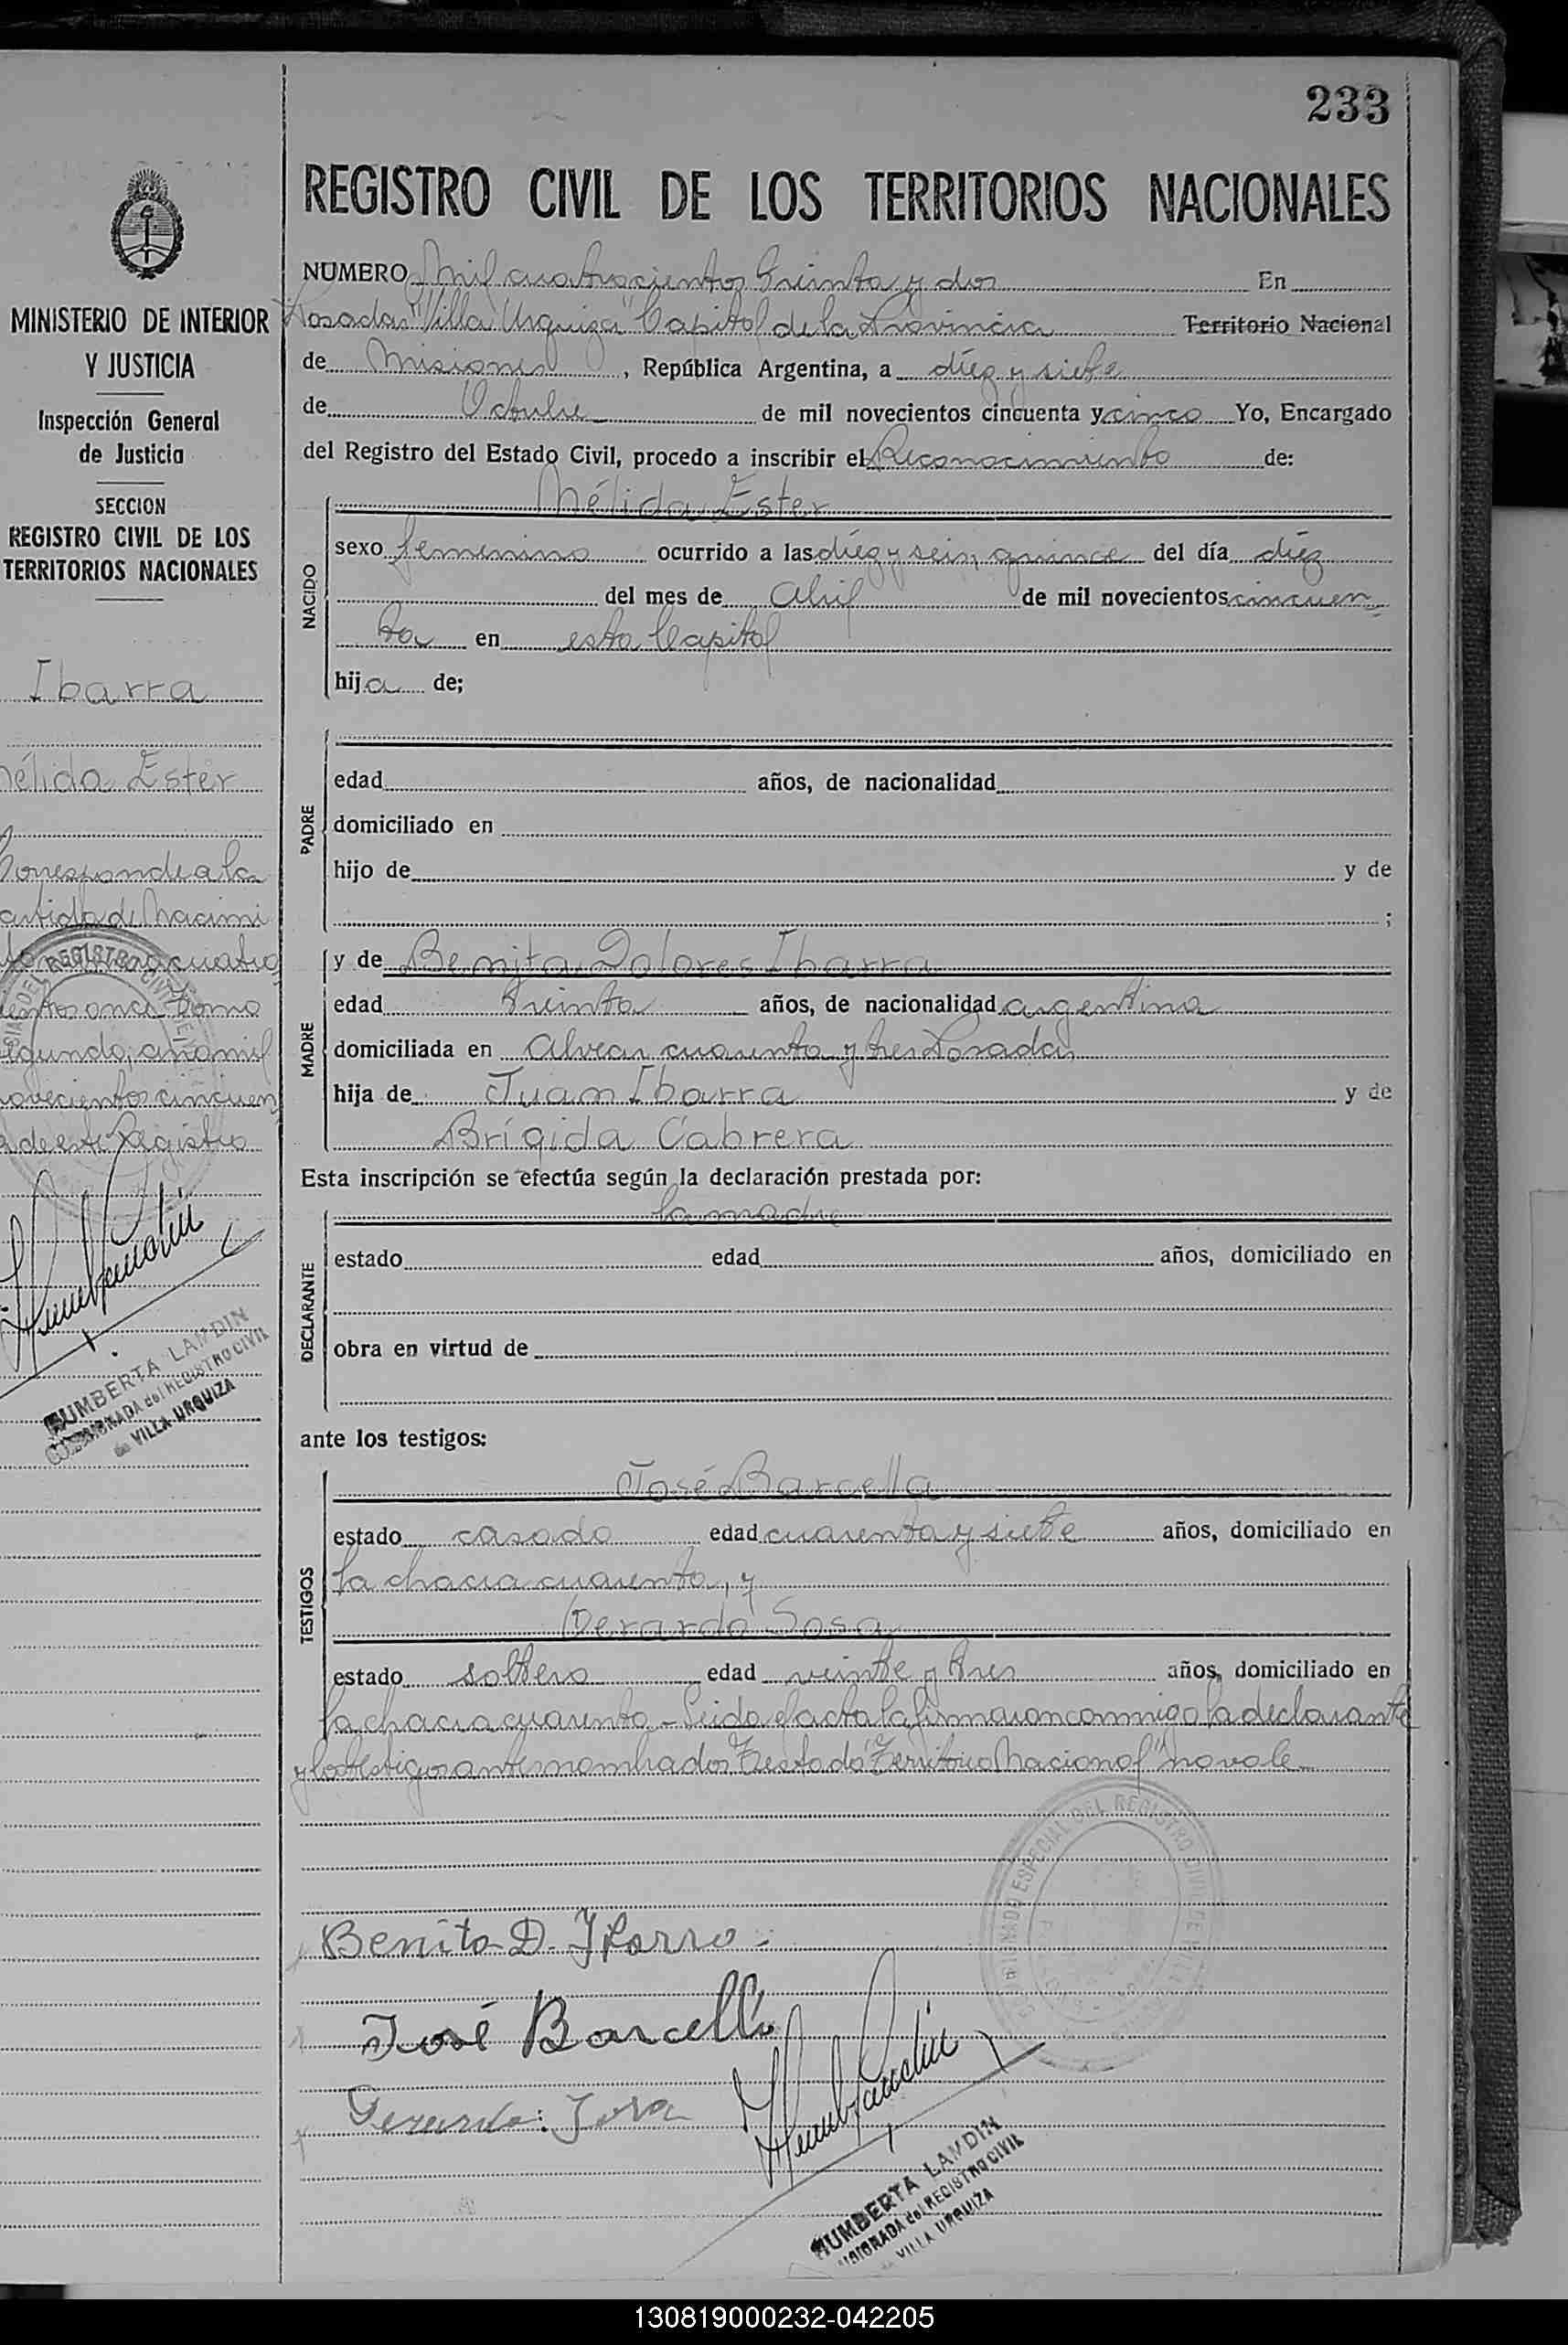 233
REGISTRO CIVIL DE LOS TERRITORIOS NACIONALES
NUMERO Mil cuatrocientos treinta y dos En
Posadas "Villa Urquiza" Capital de la Provincia Territorio Nacional
de Misiones, República Argentina, a diez y siete
de Octubre de mil novecientos cincuenta y cinco Yo, Encargado
del Registro del Estado Civil, procedo a inscribir el Reconocimiento de:
NACIDO
Nélida Ester
sexo femenino ocurrido a las diéz y seis, quince del día diéz
del mes de Abril de mil novecientos cincuen
ta en esta Capital
hija de;
PADRE
edad años, de nacionalidad
domiciliado en
hijo de y de
;
MADRE
y de Benita Dolores Ibarra
edad treinta años, de nacionalidad argentina
domiciliada en Alvear cuarenta y tres Posadas
hija de Juan Ibarra y de
Brígida Cabrera
Esta inscripción se efectúa según la declaración prestada por:
DECLARANTE
la madre
estado edad años, domiciliado en
obra en virtud de
ante los testigos:
TESTIGOS
José Barcella
estado casado edad cuarenta y siete años, domiciliado en
la chacra cuarenta, y
Gerardo Sosa
estado soltero edad veinte y tres años, domiciliado en
la chacra cuarenta - Leida el acta la firmaron conmigo la declarante
y los testigos antes nombrados Testado "Territorio Nacional" no vale
Benita D. Ibarra
José Barcella
Gerardo Sosa
HUMBERTA LANDIN
COMISIONADA del REGISTRO CIVIL
de VILLA URQUIZA
MINISTERIO DE INTERIOR
Y JUSTICIA
Inspección General
de Justicia
SECCION
REGISTRO CIVIL DE LOS
TERRITORIOS NACIONALES
Ibarra
Nélida Ester
Corresponde a la
partida de Nacimi
cuatro
cientos once tomo
segundo, año mil
novecientos cincuen
ta de este Registro
HUMBERTA LANDIN
COMISIONADA del REGISTRO CIVIL
de VILLA URQUIZA
130819000232-042205